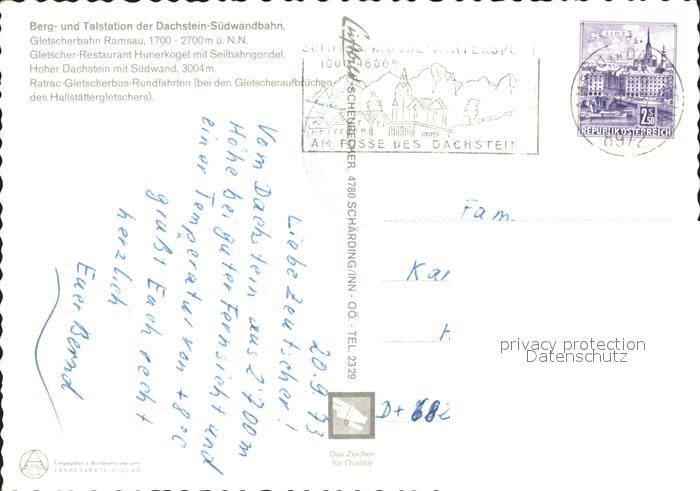 Berg- und Talstation der Dachstein-Südwandbahn,
Gletscherbahn Ramsau, 1700 - 2700m ü. N.N.
Gletscher-Restaurant Hunerkogel mit Seilbahngondel.
Hoher Dachstein mit Südwand, 3004m.
Ratrac-Gletscherbus-Rundfahrten (bei den Gletscheraufbrüchen
des Hallstättergletschers).
AM FUSSE DES DACHSTEIN
8972
LINZ
2.50
REPUBLIK ÖSTERREICH
4780 SCHÄRDING/INN - OÖ. - TEL 2329
20.9.73
Liebe Zeutscher!
Vom Dachstein aus 2700m
Höhe bei guter Fernsicht und
einer Temperatur von +8°C
grüßt Euch recht
herzlich
Euer Bernd
Fam.
Kar
D+ 682
privacy protection
Datenschutz
Das Zeichen
für Qualität
Freigegeben v. Bundesministerium f.
LANDESVERTEIDIGUNG